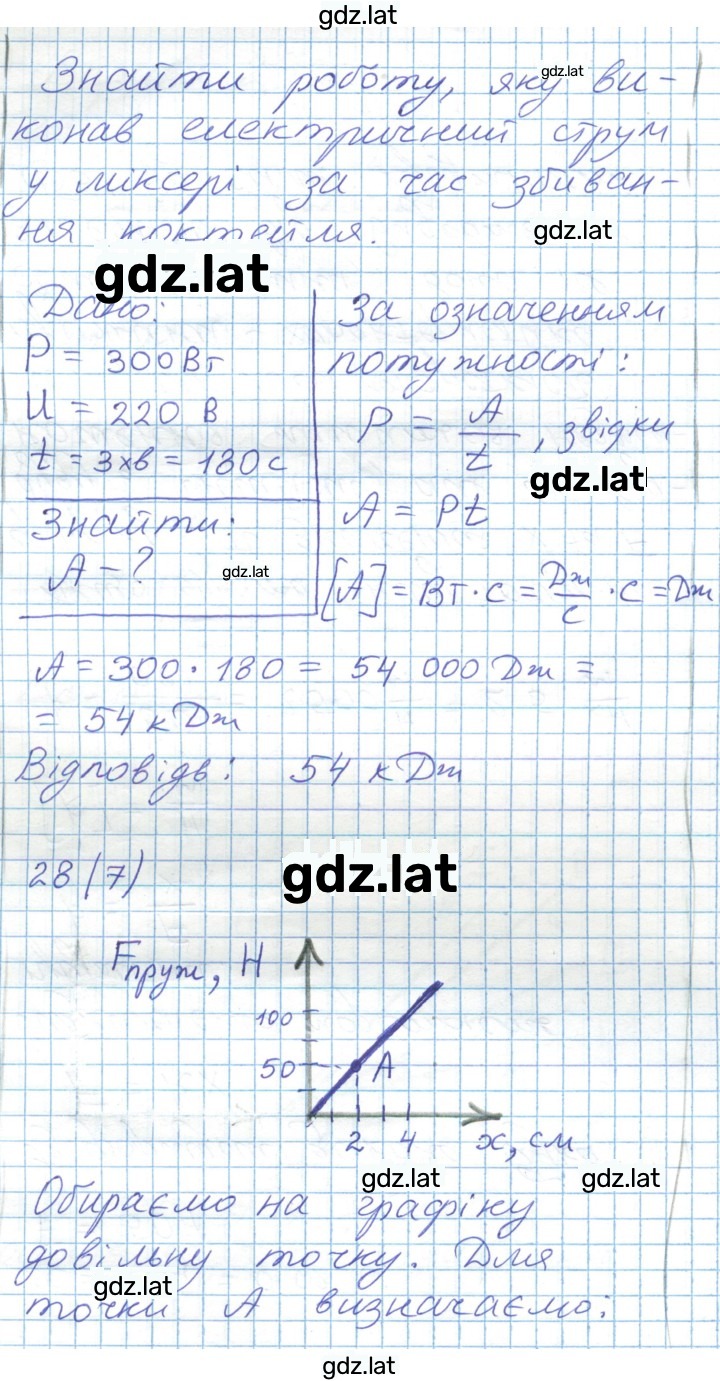 gdz.lat
Знайти роботу, яку ви-
gdz.lat
конав електричний струм
у міксері за час збиван-
ня коктейля.
gdz.lat
gdz.lat
Дано:
P = 300 Вт
U = 220 В
t = 3 хв = 180 с
Знайти:
A - ?
gdz.lat
За означенням
потужності:
P = A/t, звідки
gdz.lat
A = Pt
[A] = Вт · с = Дж/с · с = Дж
A = 300 · 180 = 54 000 Дж =
= 54 кДж
Відповідь: 54 кДж
28 (7)
gdz.lat
Fпруж, Н
100
50
A
2 4 x, см
gdz.lat
gdz.lat
Обираємо на графіку
довільну точку. Для
gdz.lat
точки А визначаємо:
gdz.lat